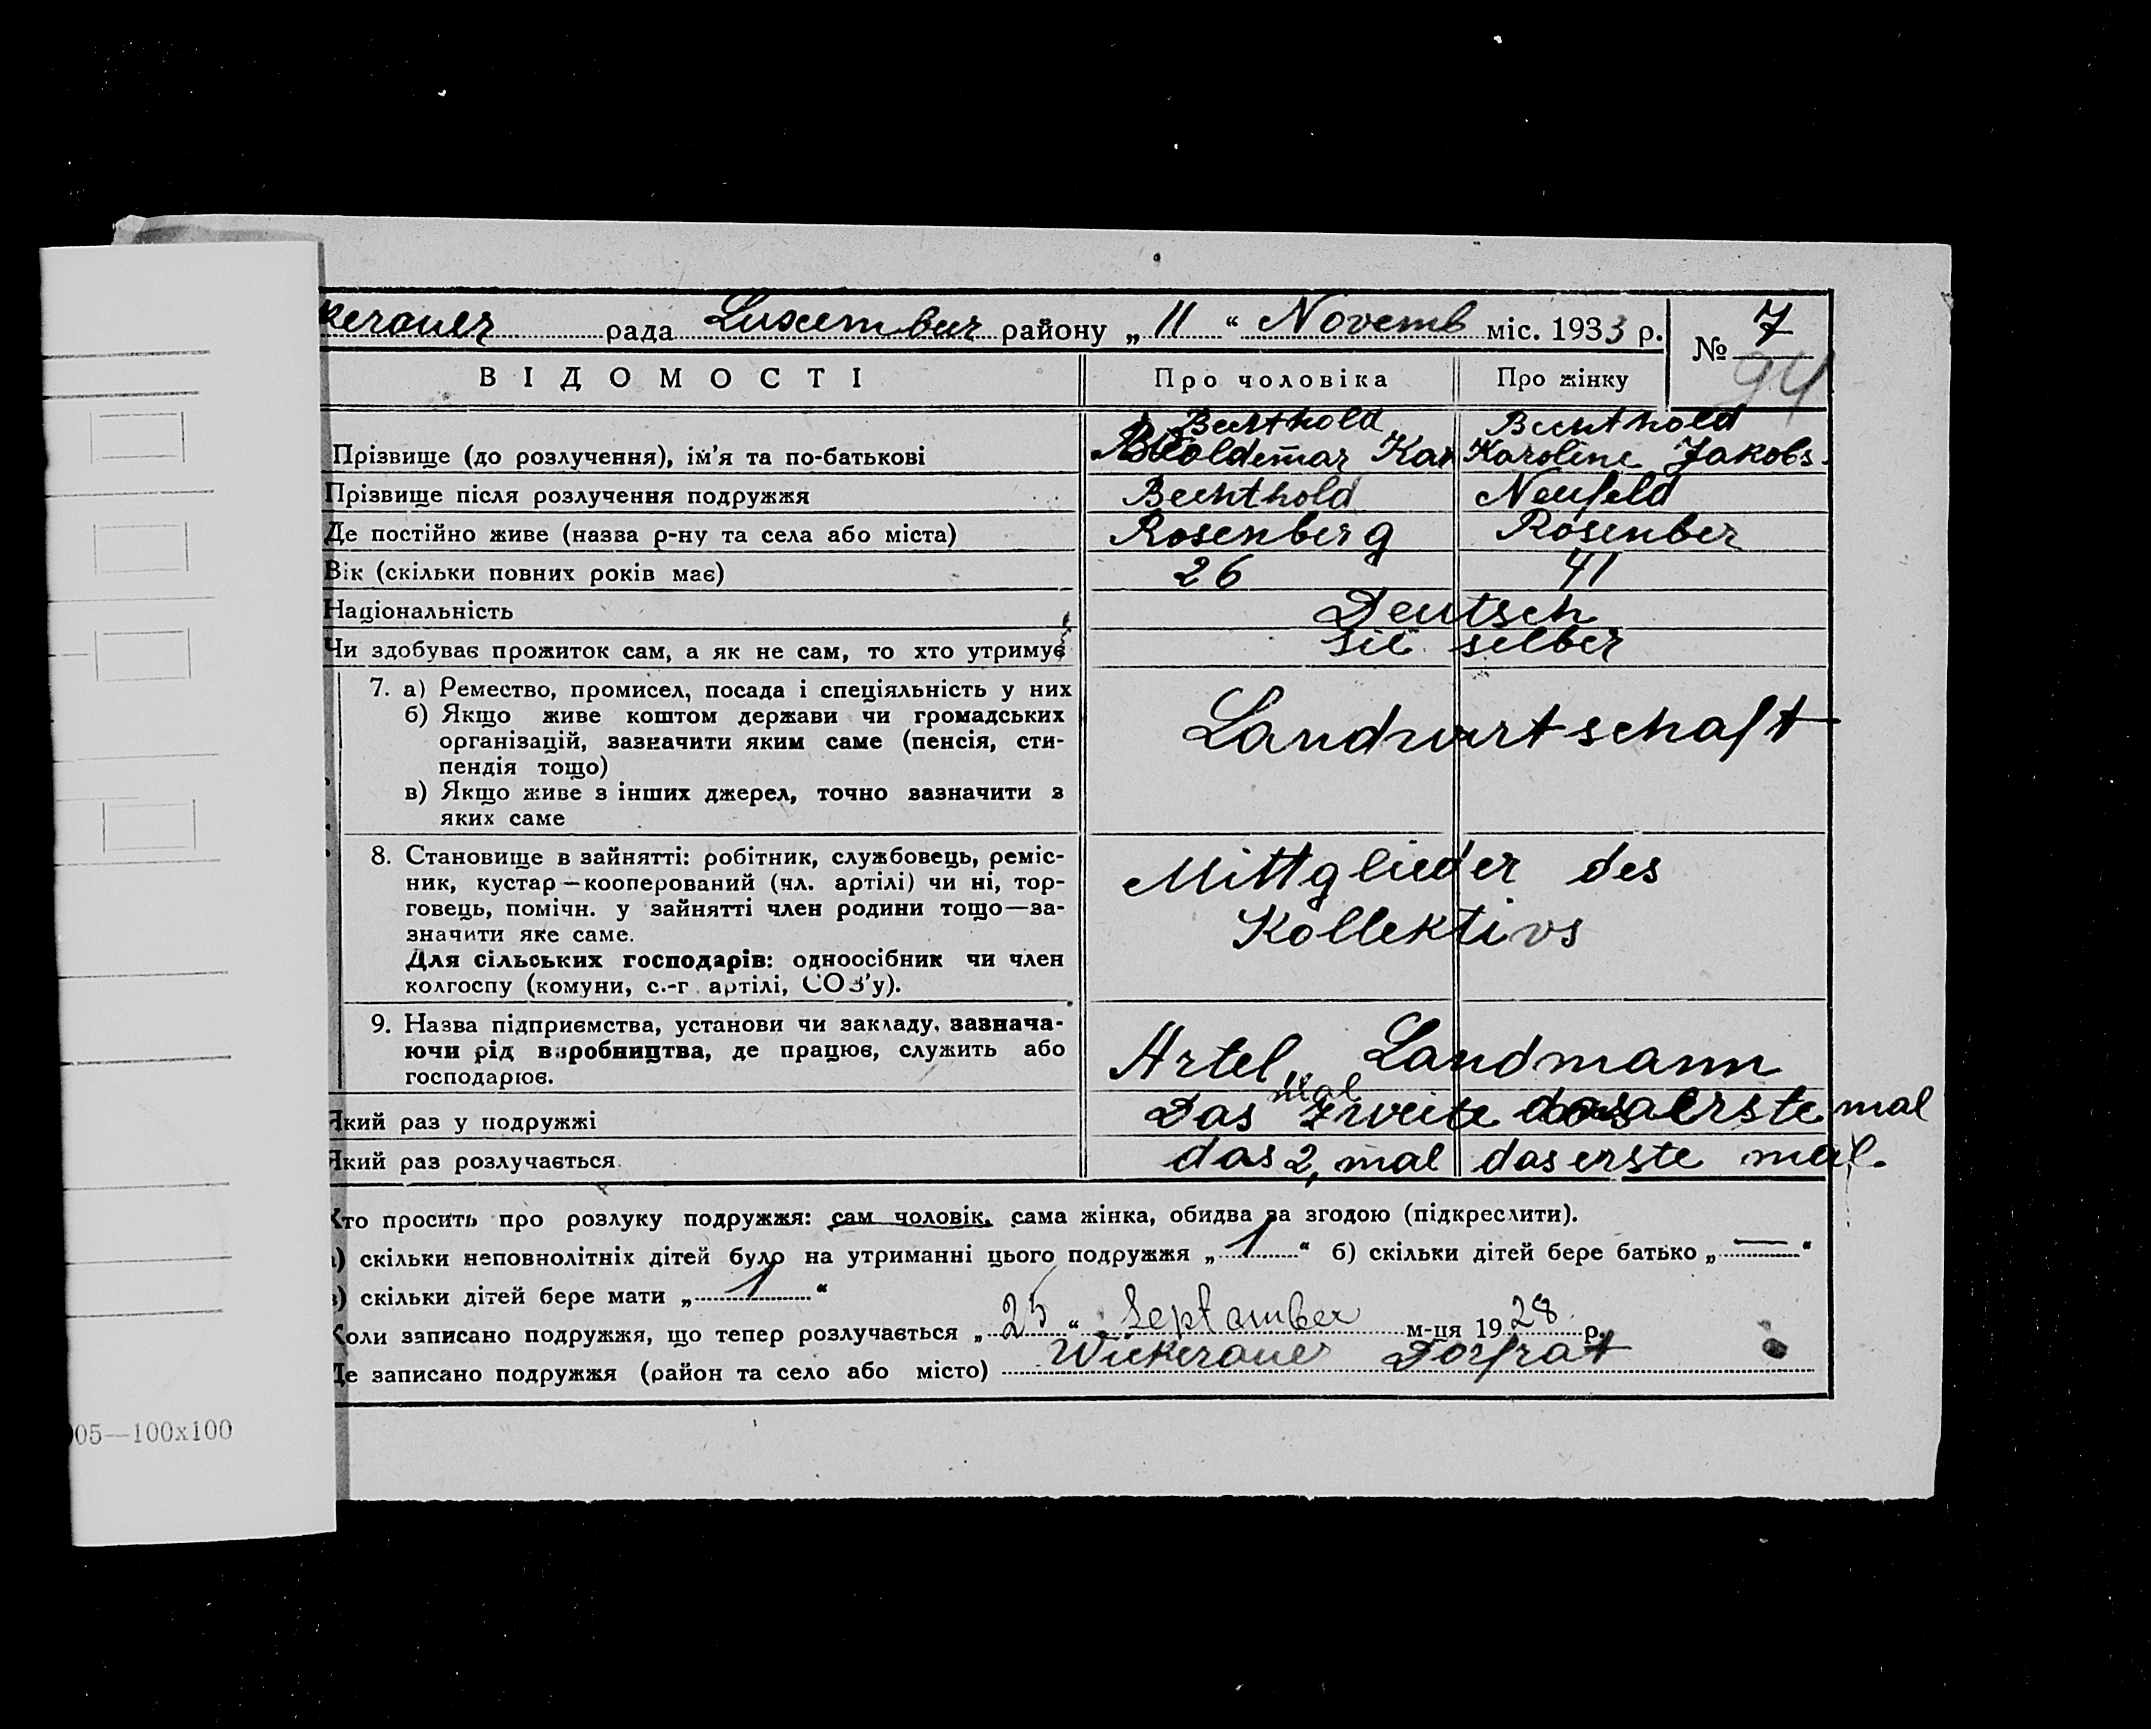 kerauer рада Luxembur району „ 11 “ Novemb міс. 1933 р. № 7
94
ВІДОМОСТІ Про чоловіка Про жінку
Bechthold Bechthold
Прізвище (до розлучення), ім'я та по-батькові Woldemar Kar Karoline Jakobs.
Прізвище після розлучення подружжя Bechthold Neufeld
Де постійно живе (назва р-ну та села або міста) Rosenberg Rosenber
Вік (скільки повних років має) 26 41
Національність Deutsch
Чи здобуває прожиток сам, а як не сам, то хто утримує sie selber
7. а) Ремество, промисел, посада і спеціяльність у них
б) Якщо живе коштом держави чи громадських
організацій, зазначити яким саме (пенсія, сти-
пендія тощо)
в) Якщо живе з інших джерел, точно зазначити з
яких саме
Landwirtschaft
8. Становище в зайнятті: робітник, службовець, реміс-
ник, кустар—кооперований (чл. артілі) чи ні, тор-
говець, помічн. у зайнятті член родини тощо—за-
значити яке саме.
Для сільських господарів: одноосібник чи член
колгоспу (комуни, с.-г. артілі, СОЗ'у).
Mittglieder des
Kollektivs
9. Назва підприємства, установи чи закладу, зазнача-
ючи рід виробництва, де працює, служить або
господарює.
Artel „ Landmann
mal
Який раз у подружжі Das zweite das erste mal
Який раз розлучається das 2, mal das erste mal.
Хто просить про розлуку подружжя: сам чоловік, сама жінка, обидва за згодою (підкреслити).
) скільки неповнолітніх дітей було на утриманні цього подружжя „ 1 “ б) скільки дітей бере батько „ — “
) скільки дітей бере мати „ 1 “
Коли записано подружжя, що тепер розлучається „ 25 “ September м-ця 1928 р.
Де записано подружжя (район та село або місто) Wickerauer Dorfrat
05—100x100